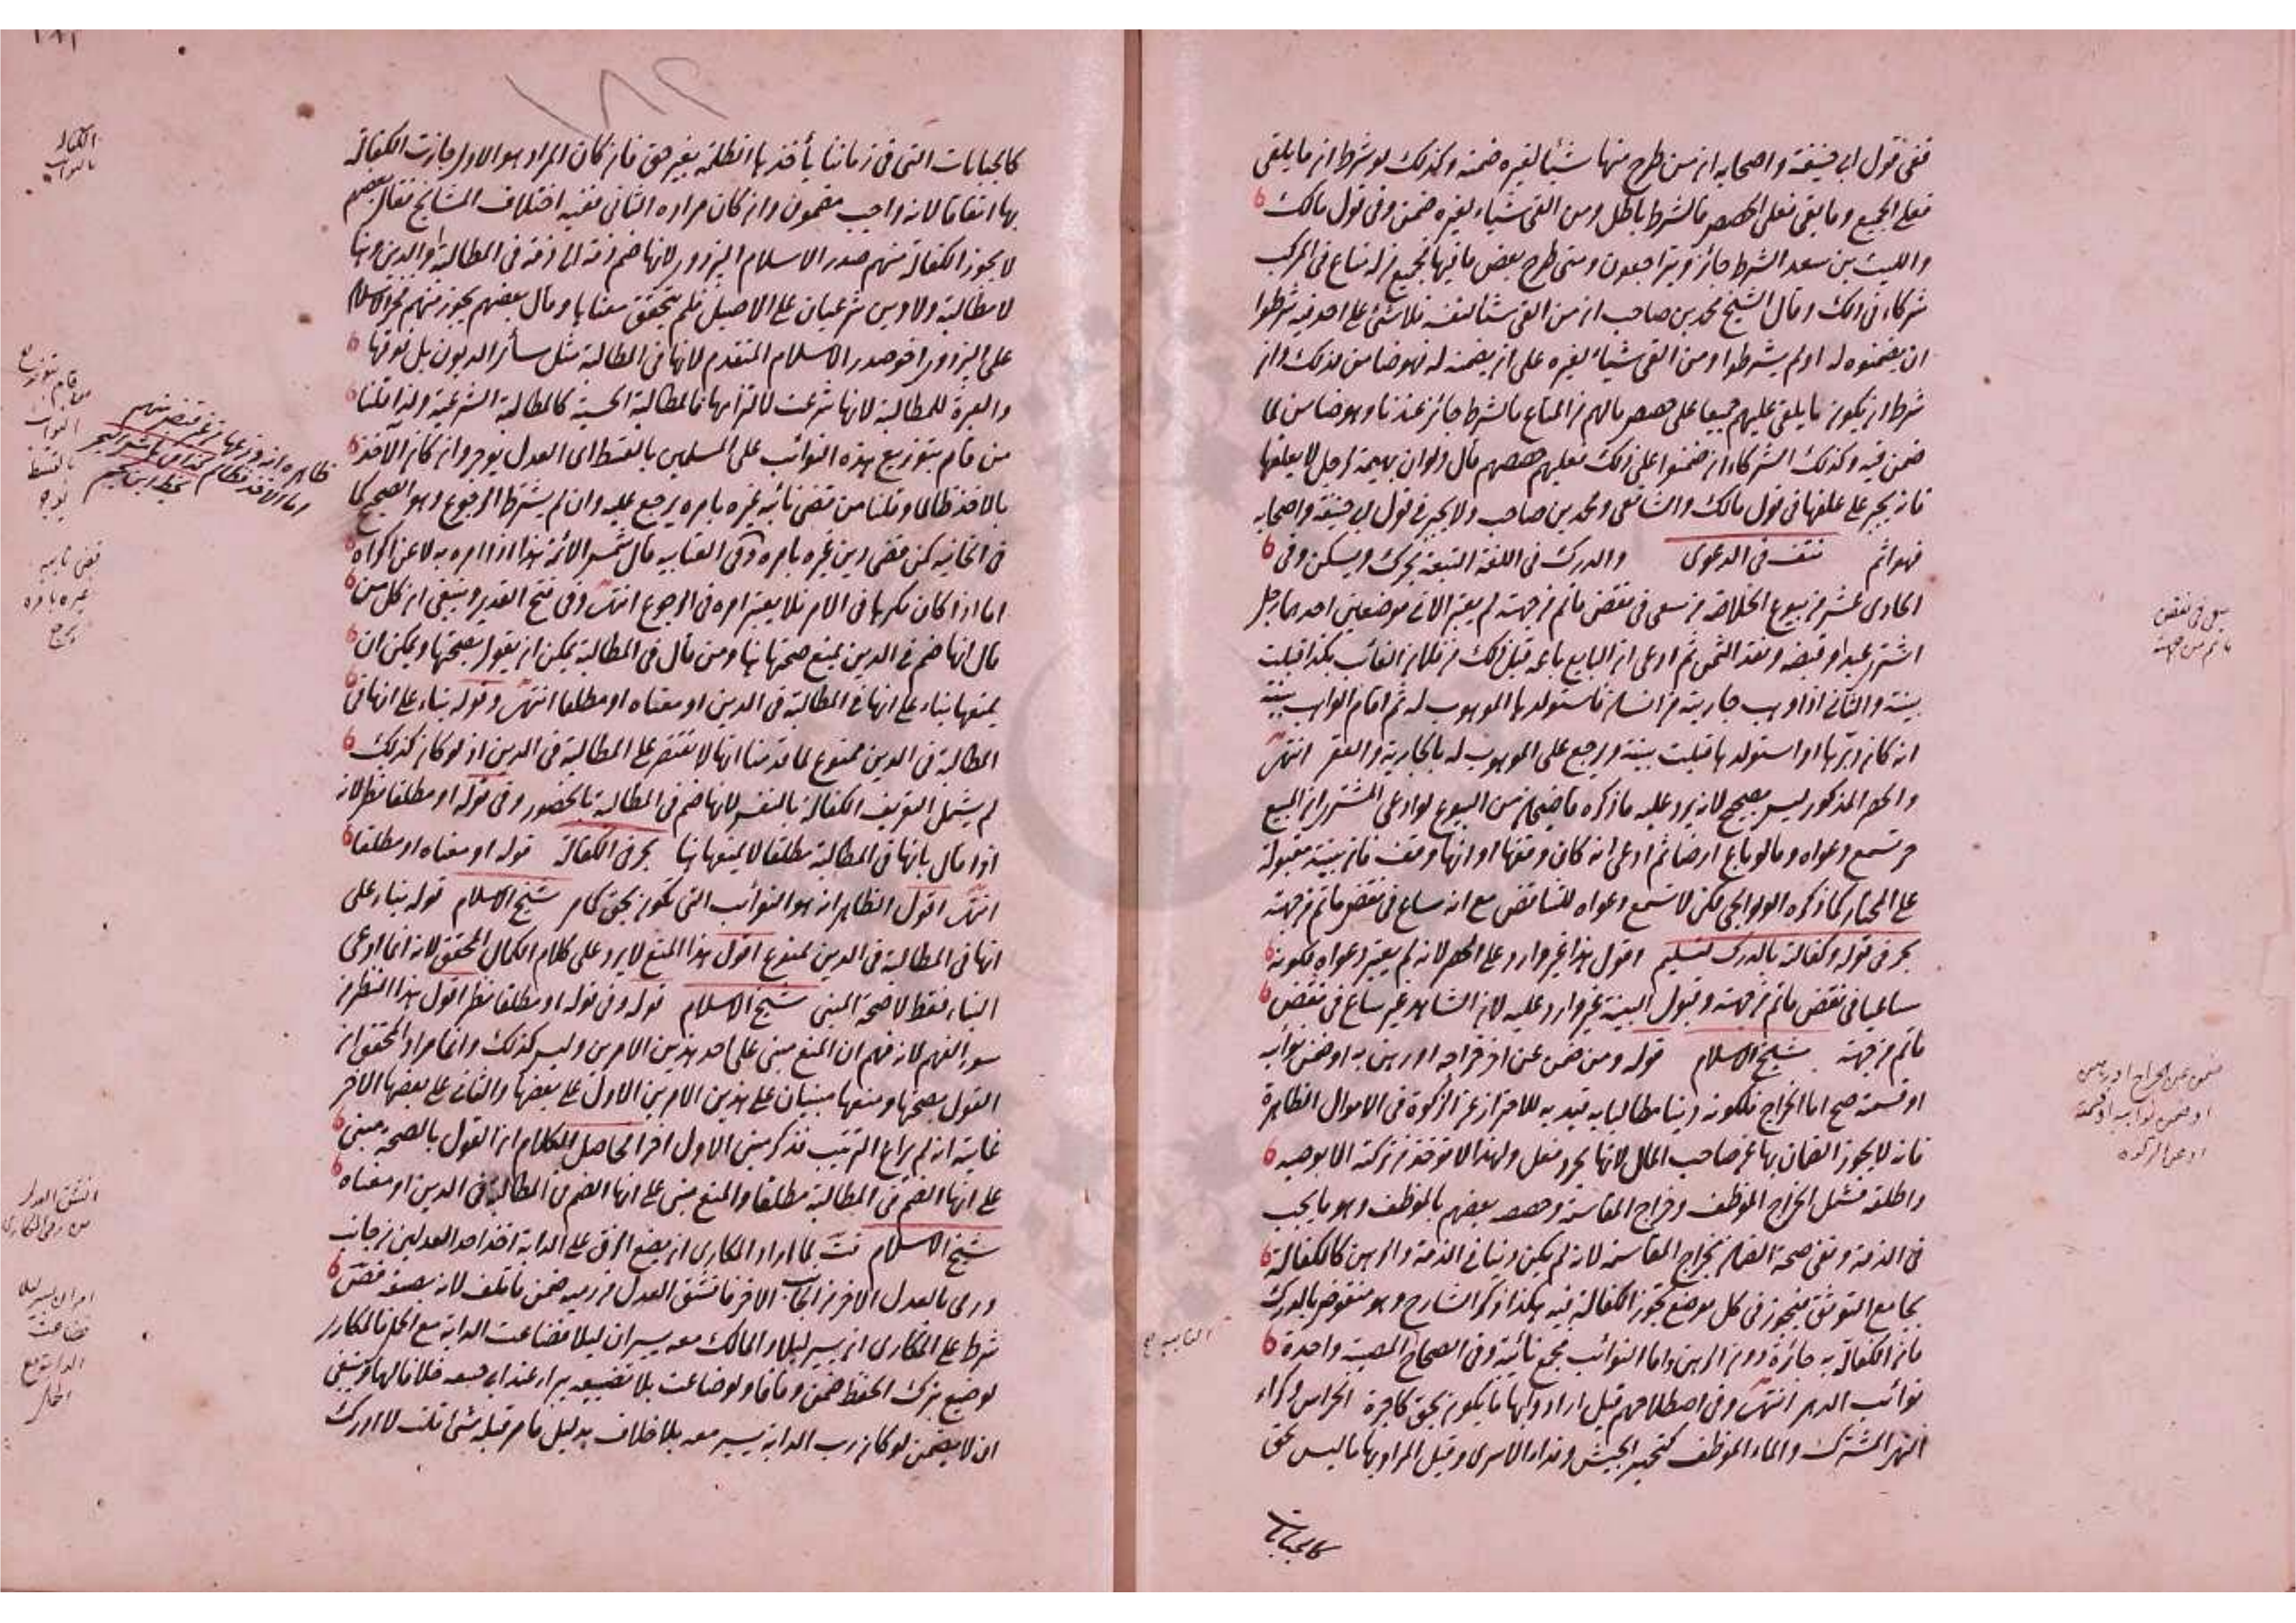 ففى قول ابى حنيفة واصحابه ان من طرح منها شيئا لغيره ضمنه وكذلك لو شرط ان ما يلقى
فعلى الجميع وما بقى فعلى الحصص فالشرط باطل ومن القى شياء لغيره ضمن وفى قول مالك
والليث بن سعد الشرط جائز ويتراجعون ومتى طرح بعض ما فيها فجميع من له متاع فى المركب
شركاء فى ذلك وقال الشيخ محمد بن صاحب ان من القى متاع نفسه فلا شئ على احد فيه شرطوا
ان يضمنوه له او لم يشرطوا ومن القى شياء لغيره على ان يضمنه له فهو ضامن لذلك وان
شرط ان يكون ما يلقى عليهم جميعا على حصص مالهم من المتاع فالشرط جائز عندنا وهو ضامن لما
ضمن فيه وكذلك الشركاء ان ضمنوا على ذلك فعليهم حصصهم قال ولو ان بهيمة لرجل لا يعلفها
فانه يجبر على علفها فى قول مالك والشافعى ومحمد بن صاحب ولا يجبر فى قول ابى حنيفة واصحابه
فهو اثم نتف فى الدعوى والدرك فى اللغة التبعة يحرك ويسكن وفى
الحادى عشر من بيوع الخلاصة من سعى فى نقض ما تم من جهته لم يعتبر الا فى موضعين احدهما رجل
اشترى عبدا وقبضه ونقد الثمن ثم ادعى ان البايع باعه قبل ذلك من فلان الغائب بكذا قبلت
بينته والثانى اذا وهب جارية من انسان فاستولدها الموهوب له ثم اقام الواهب بينة
انه كان دبرها او استولدها قبلت بينته ويرجع على الموهوب له بالجارية والعقر انتهى
والحصر المذكور ليس بصحيح لانه يرد عليه ما ذكره قاضيخان من البيوع لو ادعى المشترى ان المبيع
حر تسمع دعواه وما لو باع ارضا ثم ادعى انه كان وقفها او انها وقف فان بينته مقبولة
على المختار كما ذكره الولوالجى لكن لا تسمع دعواه للتناقض مع انه ساع فى نقض ما تم من جهته
بحر فى قوله وكفالته بالدرك تسليم اقول هذا غير وارد على الحصر لانه لم يعتبر دعواه لكونه
ساعيا فى نقض ما تم من جهته وقبول البينة غير وارد عليه لان الشاهد غير ساع فى نقض
ما تم من جهته شيخ الاسلام قوله ومن ضمن عن اخر خراجه او رهن به او ضمن نوائبه
او قسمته صح اما الخراج فلكونه دينا مطالبا به قيد به للاحتراز عن الزكوة فى الاموال الظاهرة
فانه لا يجوز الضمان بها عن صاحب المال لانها مجرد فعل ولهذا لا تؤخذ من تركته الا بوصيه
واطلقه فشمل الخراج الموظف وخراج المقاسمة وخصصه بعضهم بالموظف وهو ما يجب
فى الذمة ونفى صحة الضمان بخراج المقاسمة لانه لم يكن دينا فى الذمة والرهن كالكفالة
بجامع التوثق فيجوز فى كل موضع تجوز الكفالة فيه هكذا ذكر الشارح وهو منقوض بالدرك
فان الكفالة به جائزة دون الرهن واما النوائب فجمع نائبة وفى الصحاح المصيبة واحدة
نوائب الدهر انتهى وفى اصطلاحهم قيل ارادوا بها ما يكون بحق كاجرة الحراس وكراء
النهر المشترك والمال الموظف كتجهيز الجيش وفداء الاسرى وقيل المراد بها ما ليس بحق
كالجبايات
سعى فى نقض
ما تم من جهته
ضمن عن الخراج او رهن
او ضمن نوائبه او قسمته
كالجبايات التى فى زماننا يأخذها الظلمة بغير حق فان كان المراد هو الاول جازت الكفالة
بها اتفاقا لانه واجب مضمون وان كان مراده الثانى ففيه اختلاف المشايخ فقال بعضهم
لا يجوز الكفالة منهم صدر الاسلام البزدوى لانها ضم ذمة الى ذمة فى المطالبة او الدين وهنا
لا مطالبة ولا دين شرعيان على الاصيل فلم يتحقق معناها وقال بعضهم يجوز منهم فخر الاسلام
على البزدوى اخو صدر الاسلام المتقدم لانها فى المطالبة مثل سائر الديون بل فوقها
والعبرة للمطالبة لانها شرعت لالتزامها فالمطالبة الحسية كالمطالبة الشرعية ولذا قلنا
من قام بتوزيع هذه النوائب على المسلمين بالقسط اى العدل يوجر وان كان الآخذ
بالاخذ ظالما وقلنا من قضى نائبة غيره بامره يرجع عليه وان لم يشترط الرجوع وهو الصحيح كما
فى الخانيه كمن قضى دين غيره بامره وفى العنايه قال شمس الائمة هذا اذا امره به لا عن اكراه
اما اذا كان مكرها فى الامر فلا يعتبر امره فى الرجوع انتهى وفى فتح القدير وينبغى ان كل من
قال انها ضم فى الدين يمنع صحتها هنا ومن قال فى المطالبة يمكن ان يقول بصحتها ويمكن ان
يمنعها بناء على انها فى المطالبة فى الدين او معناه او مطلقا انتهى وقوله بناء على انها فى
المطالبة فى الدين ممنوع لما قدمنا انها لا تقتصر على المطالبة فى الدين اذ لو كان كذلك
لم يشمل التعريف الكفالة بالنفس لانها ضم فى المطالبة بالحضور وفى قوله او مطلقا نظر لانه
اذا قال بانها فى المطالبة مطلقا لا يمنعها هنا بحر فى الكفالة قوله او معناه او مطلقا
انتهى اقول الظاهر انه هو النوائب التى تكون بحق كما مر شيخ الاسلام قوله بناء على
انها فى المطالبة فى الدين ممنوع اقول هذا المنع لا يرد على كلام الكمال المحقق لانه انما ادعى
البناء فقط لا صحة المبنى شيخ الاسلام قوله وفى قوله او مطلقا نظر اقول هذا النظر من
سوء الفهم لانه فهم ان المنع مبنى على احد هذين الامرين وليس كذلك وانما مراد المحقق ان
القول بصحتها ومنعها مبنيان على هذين الامرين الاول على بعضها والثانى على بعضها الاخر
غايته انه لم يراع الترتيب فذكر مبنى الاول اخرا لحاصل الكلام ان القول بالصحة مبنى
على انها الضم فى المطالبة مطلقا والمنع مبنى على انها الضم فى المطالبة فى الدين او معناه
شيخ الاسلام قت لما اراد المكارى ان يضع الزق على الدابة اخذ احد العدلين من جانب
ورمى بالعدل الاخر من الجانب الاخر فانشق العدل من رميه ضمن ما تلف لانه بصنعه قض
شرط على المكارى ان يسير ليلا والمالك معه يسيران ليلا فضاعت الدابة مع الحمل فالمكارى
لو ضيع بترك الحفظ ضمن وفاقا ولو ضاعت بلا تضييعه برا عند ابى حنيفه خلافا لهما وينبغى
ان لا يضمن لو كان رب الدابة يسير معه بلا خلاف بدليل ما مر قبله شئ تلف لا ادرك
الكفالة
بالنوائب
قام بتوزيع
النوائب
بالقسط
يوجر
قضى نائبه
غيره بامره
يرجع
انشق العدل
من رمى المكارى
امر ان يسير ليلا
فضاعت
الدابة مع
الحمل